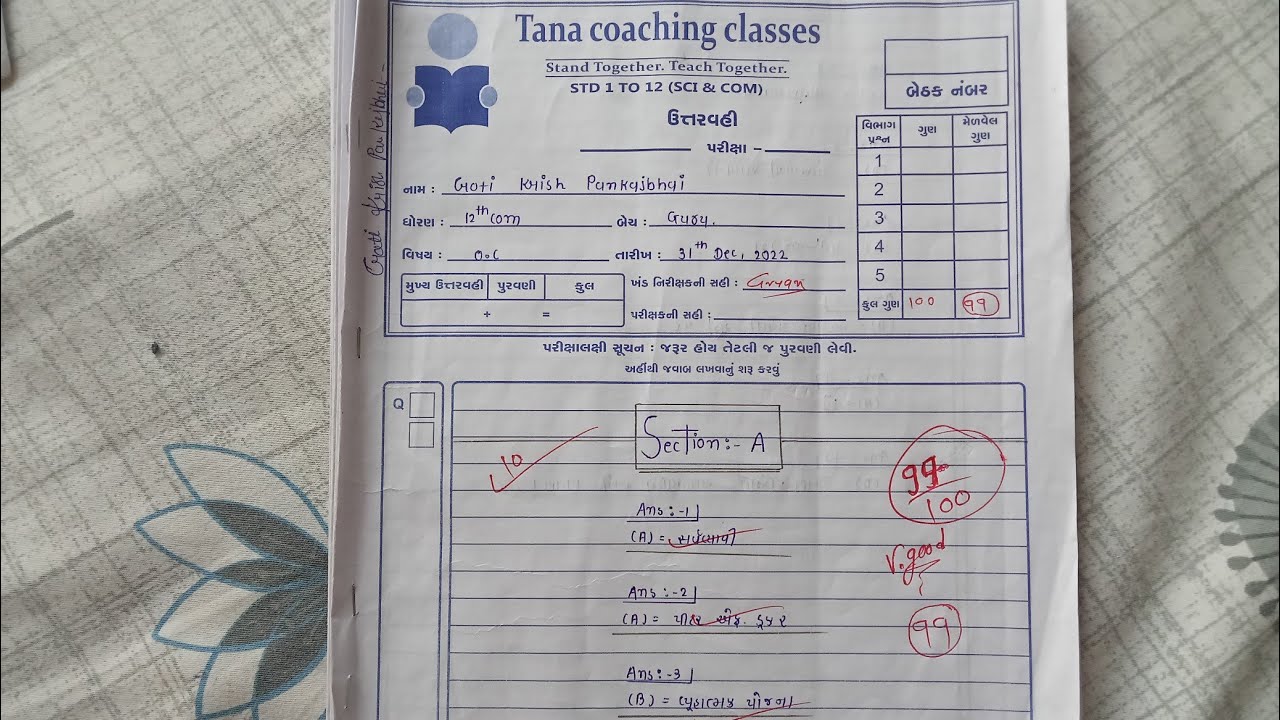 Tana coaching classes
Stand Together. Teach Together.
STD 1 TO 12 (SCI & COM)
ઉત્તરવહી
પરીક્ષા -
બેઠક નંબર
વિભાગ પ્રશ્ન ગુણ મેળવેલ ગુણ
1
2
3
4
5
કુલ ગુણ 100 99
નામ : Goti Krish Pankajbhai
ધોરણ : 12th com બેચ : Guru.
વિષય : O.C તારીખ : 31th Dec, 2022
મુખ્ય ઉત્તરવહી પુરવણી કુલ
+ =
ખંડ નિરીક્ષકની સહી :
પરીક્ષકની સહી :
Goti Krish Pankajbhai -
પરીક્ષાલક્ષી સૂચન : જરૂર હોય તેટલી જ પુરવણી લેવી.
અહીંથી જવાબ લખવાનું શરૂ કરવું
Q
Section:- A
10
99
100
V.good
99
Ans :-1
(A) = સર્વવ્યાપી
Ans :-2
(A) = પીટર એફ. ડ્રકર
Ans :-3
(B) = વ્યૂહાત્મક યોજના